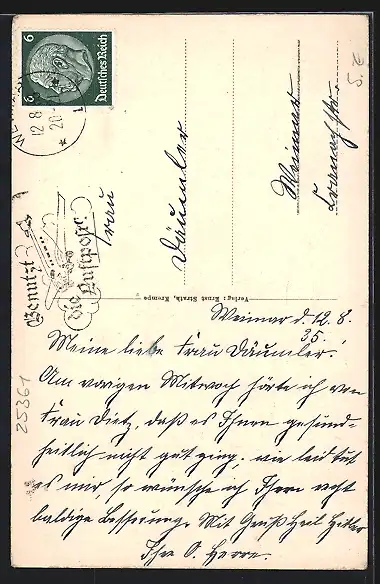 Deutsches Reich
6 6
WEIMAR
12.8.
20-
Benutzt
die Luftpost!
Frau
Däumler
Weimar
Cranachstr.
S. E
Verlag: Ernst Strath, Krempe
25361
Weimar d. 12. 8.
35.
Meine liebe Frau Däumler!
Am vorigen Mittwoch hörte ich von
Frau Dietz, daß es Ihnen gesund-
heitlich nicht gut ging, wie leid tut
es mir, so wünsche ich Ihnen recht
baldige Besserung. Mit Gruß Heil Hitler
Ihre O. Herre.